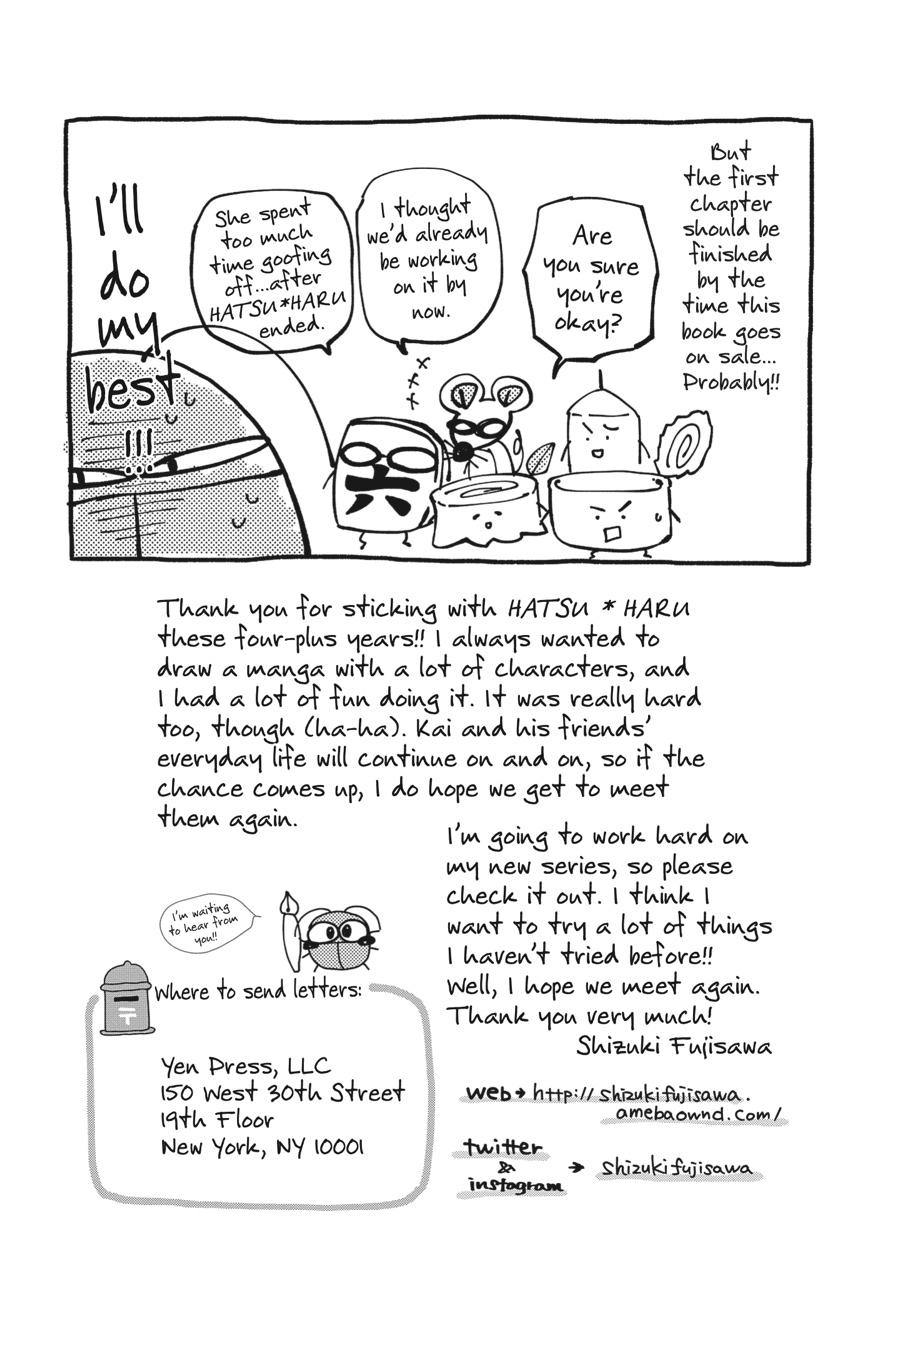 But
the first
chapter
should be
finished
by the
time this
book goes
on sale...
Probably!!
Are
you sure
you're
okay?
I thought
we'd already
be working
on it by
now.
She spent
too much
time goofing
off...after
HATSU*HARU
ended.
I'll
do
my
best
!!!
Thank you for sticking with HATSU * HARU
these four-plus years!! I always wanted to
draw a manga with a lot of characters, and
I had a lot of fun doing it. It was really hard
too, though (ha-ha). Kai and his friends'
everyday life will continue on and on, so if the
chance comes up, I do hope we get to meet
them again.
I'm going to work hard on
my new series, so please
check it out. I think I
want to try a lot of things
I haven't tried before!!
Well, I hope we meet again.
Thank you very much!
Shizuki Fujisawa
I'm waiting
to hear from
you!!
〒
Where to send letters:
Yen Press, LLC
150 West 30th Street
19th Floor
New York, NY 10001
web→http://shizukifujisawa.
amebaownd.com/
twitter
&
instagram
→ shizukifujisawa